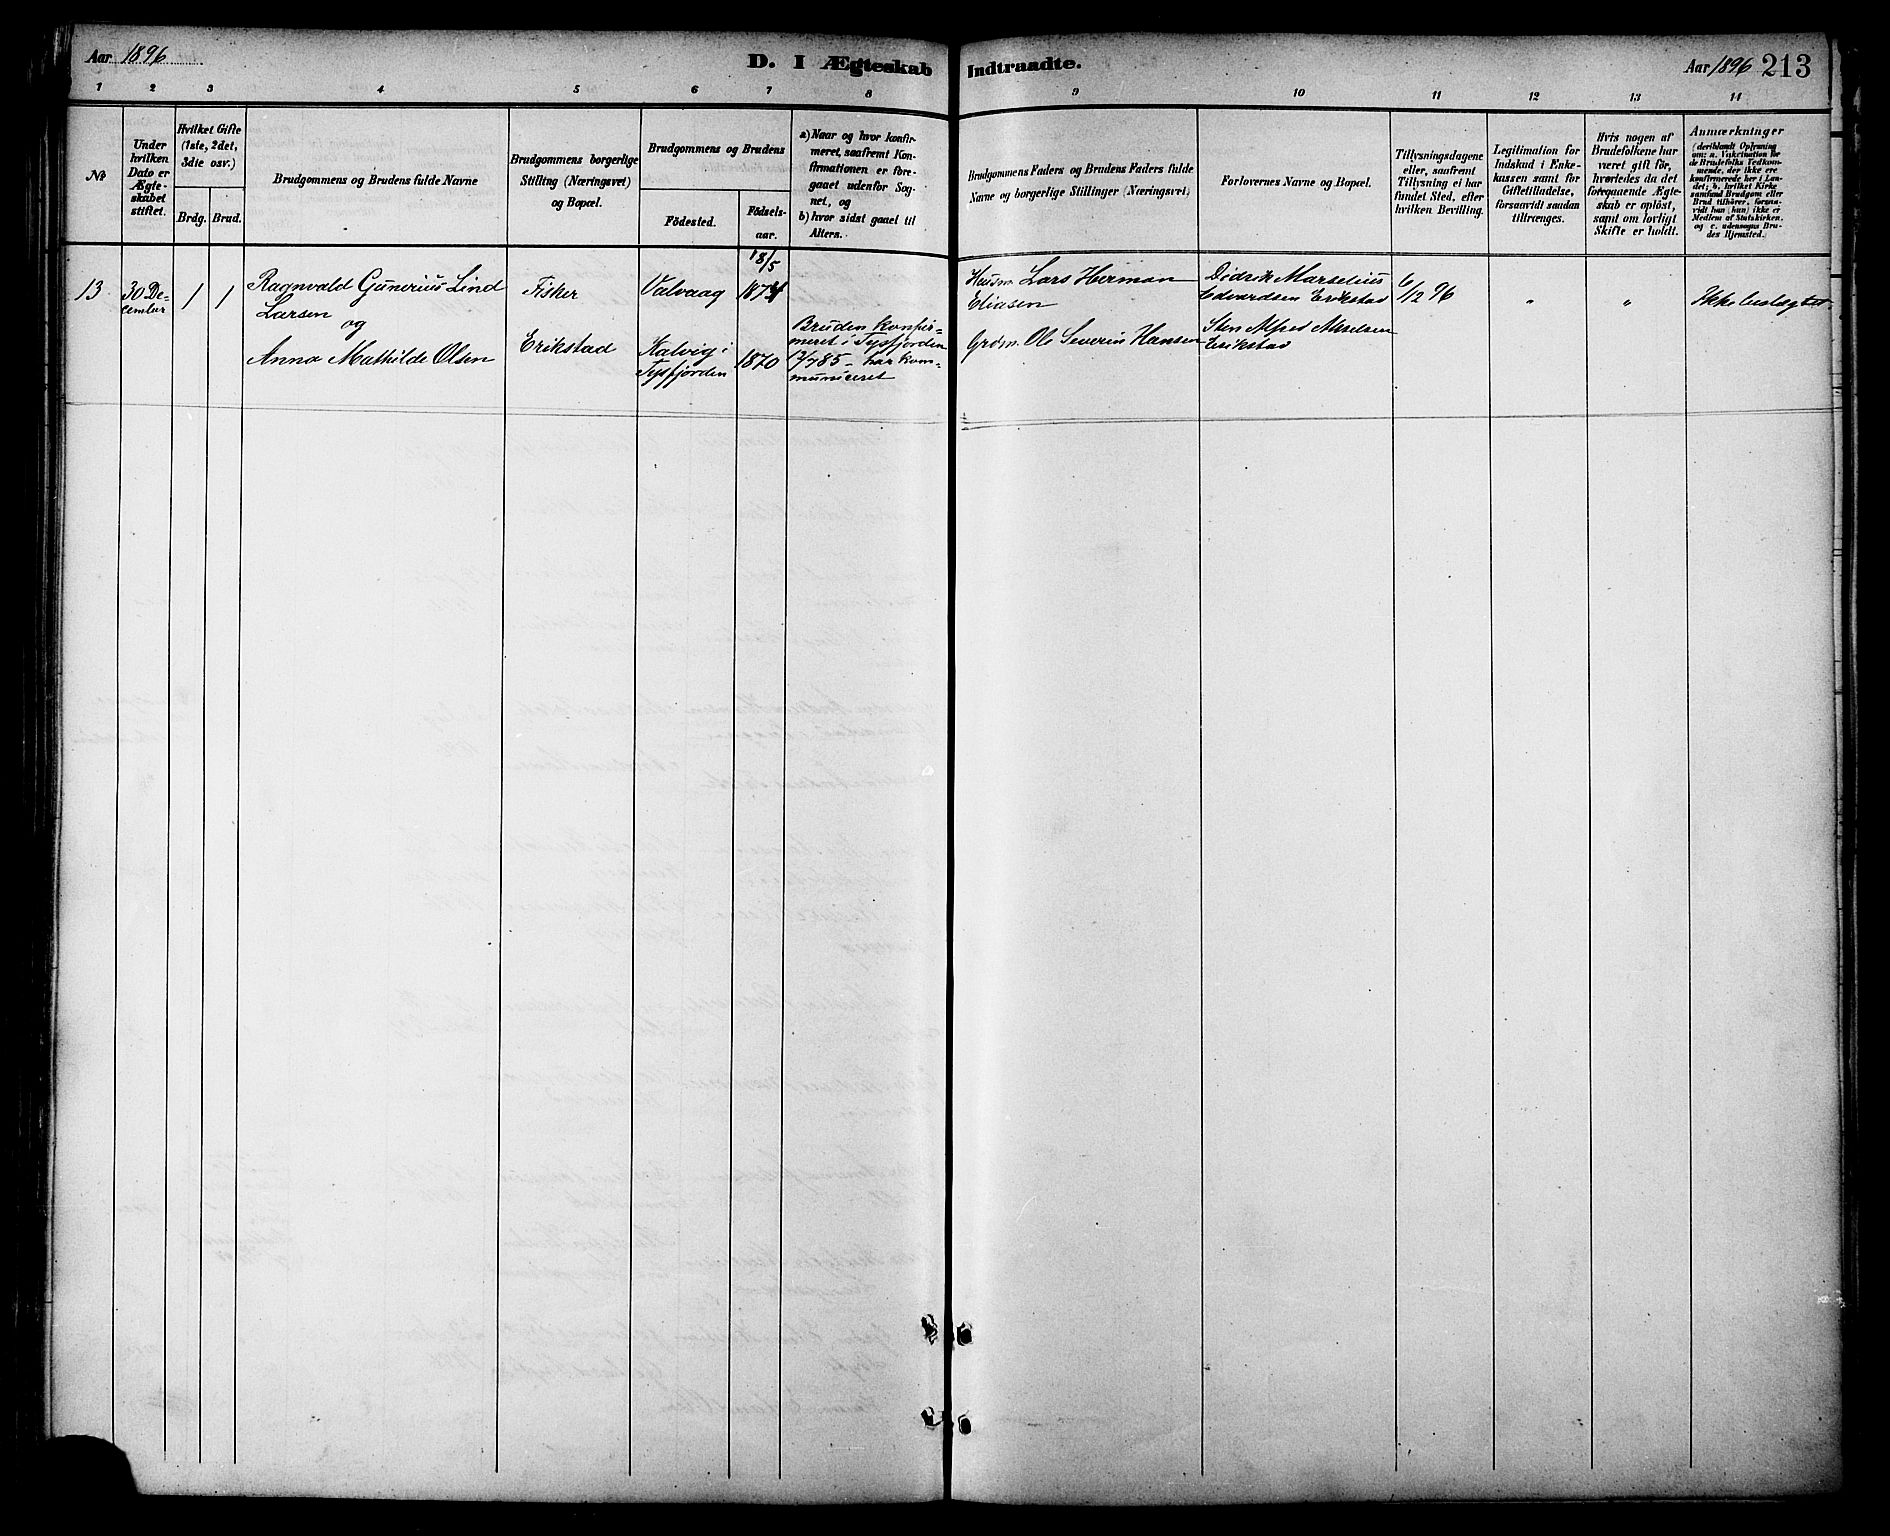 Aar 1896
D. I Ægteskab Indtraadte.
Aar 1896 213
1 2 3 4 5 6 7 8 9 10 11 12 13 14
No
Under
hvilken
Dato er
Ægte-
skabet
stiftet.
Hvilket Gifte
(1ste, 2det,
3die osv.)
Brdg. Brud.
Brudgommens og Brudens fulde Navne
Brudgommens borgerlige
Stilling (Næringsvei)
og Bopæl.
Brudgommens og Brudens
Födested.
Födsels-
aar.
a) Naar og hvor konfir-
meret, saafremt Kon-
firmationen er fore-
gaaet udenfor Sog-
net, og
b) hvor sidst gaaet til
Alters.
Brudgommens Faders og Brudens Faders fulde
Navne og borgerlige Stillinger (Næringsvei)
Forlovernes Navne og Bopæl.
Tillysningsdagene
eller, saafremt
Tillysning ei har
fundet Sted, efter
hvilken Bevilling.
Legitimation for
Indskud i Enke-
kassen samt for
Giftetilladelse,
forsaavidt saadan
tiltrænges.
Hvis nogen af
Brudefolkene har
været gift för,
hvorledes da det
foregaaende Ægte-
skab er oplöst,
samt om lovligt
Skifte er holdt.
Anmærkninger
(deriblandt Oplysning
om: a. Vakcination for
de Brudefolks Vedkom-
mende, der ikke ere
konfirmerede her i Lan-
det; b. hvilket Kirke
samfund Brudgom eller
Brud tilhörer, forsaa-
vidt han (hun) ikke er
Medlem af Statskirken.
og c. udensogns Bru-
des Hjemsted.)
13
30 De-
cember
1 1
Ragnvald Gunerius Lind
Larsen
og
Anna Mathilde Olsen
Fisker
Erikstad
Valvaag
Kalvig i
Tysfjorden
18/5
1874
1870
Bruden konfir-
meret i Tysfjorden
12/7 85 - har kom-
municeret
Husm. Lars Herman
Eliasen
Grdm. Ole Severin Hansen
Didrik Marselius
Edvardsen Erikstad
Sten Alfred Akselsen
Erikstad
6/12 96
"
"
Ikke beslægtet